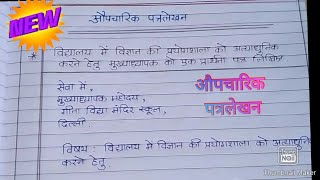 NEW
औपचारिक पत्रलेखन
* विद्यालय में विज्ञान की प्रयोगशाला को अत्याधुनिक
करने हेतु मुख्याध्यापक को एक प्रार्थना पत्र लिखिए
सेवा में,
मुख्याध्यापक महोदय,
गीता विद्या मंदिर स्कूल,
दिल्ली
औपचारिक
पत्रलेखन
विषय: विद्यालय में विज्ञान की प्रयोगशाला को अत्याधुनि
करने हेतु